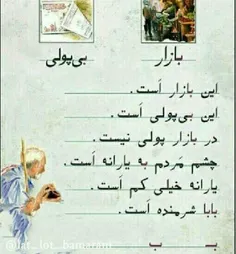 بازار
بی‌پولی
این بازار اَست .
این بی‌پولی اَست .
در بازار پولی نیست .
چشم مَردم به یارانه اَست .
یارانه خیلی کم اَست .
بابا شرمنده اَست .
بـ ب